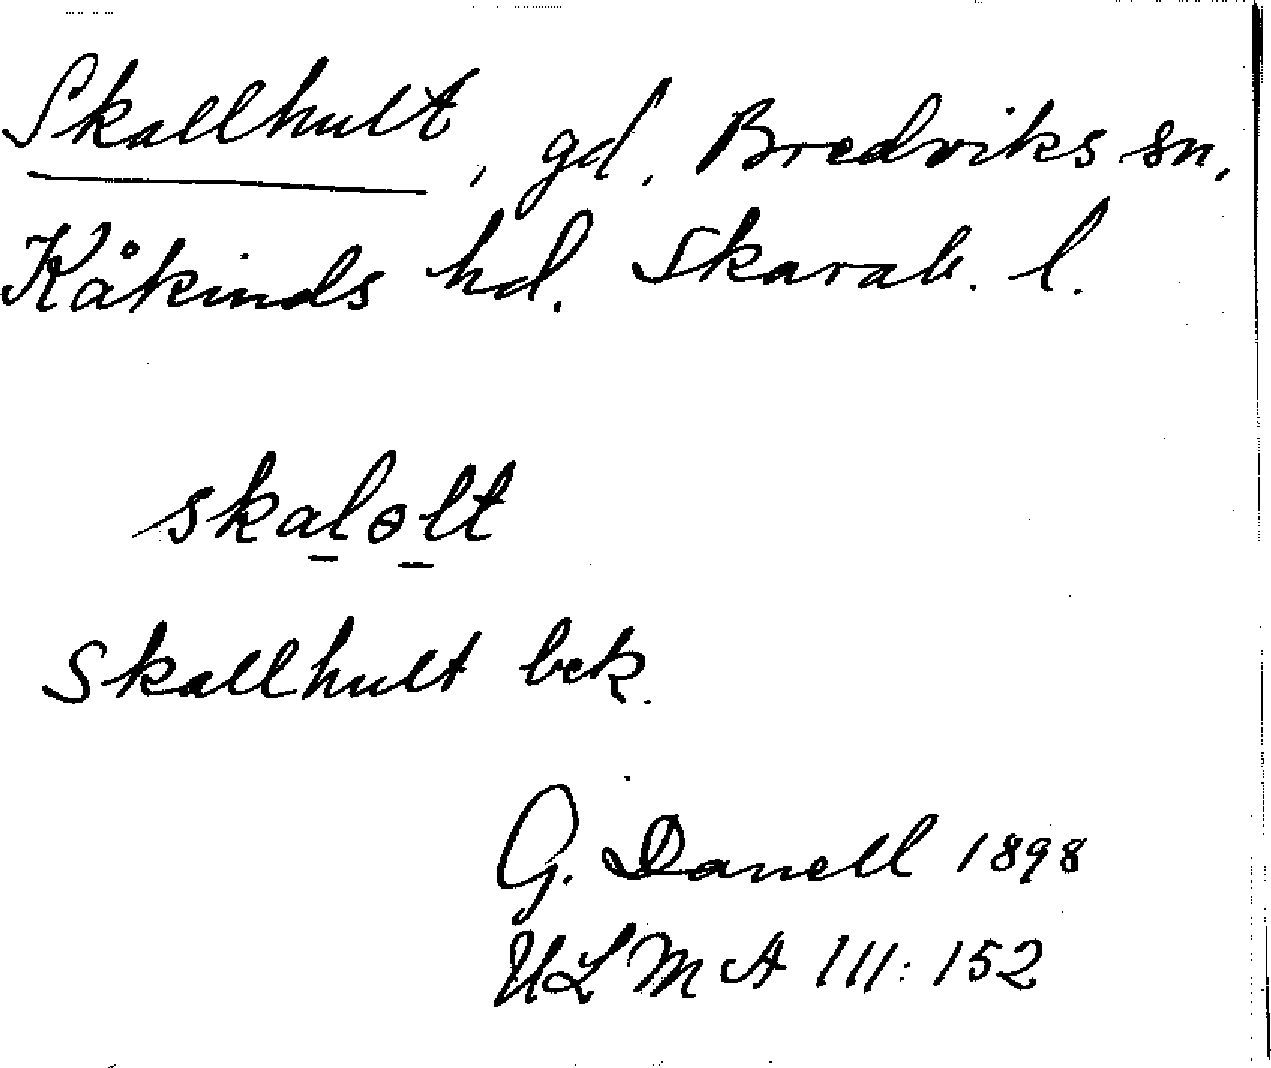 Skallhult, gd, Bredviks sn,
Kåkinds hd. Skarab. l.
skalolt
Skallhult bek.
G. Danell 1898
ULMA 111:152